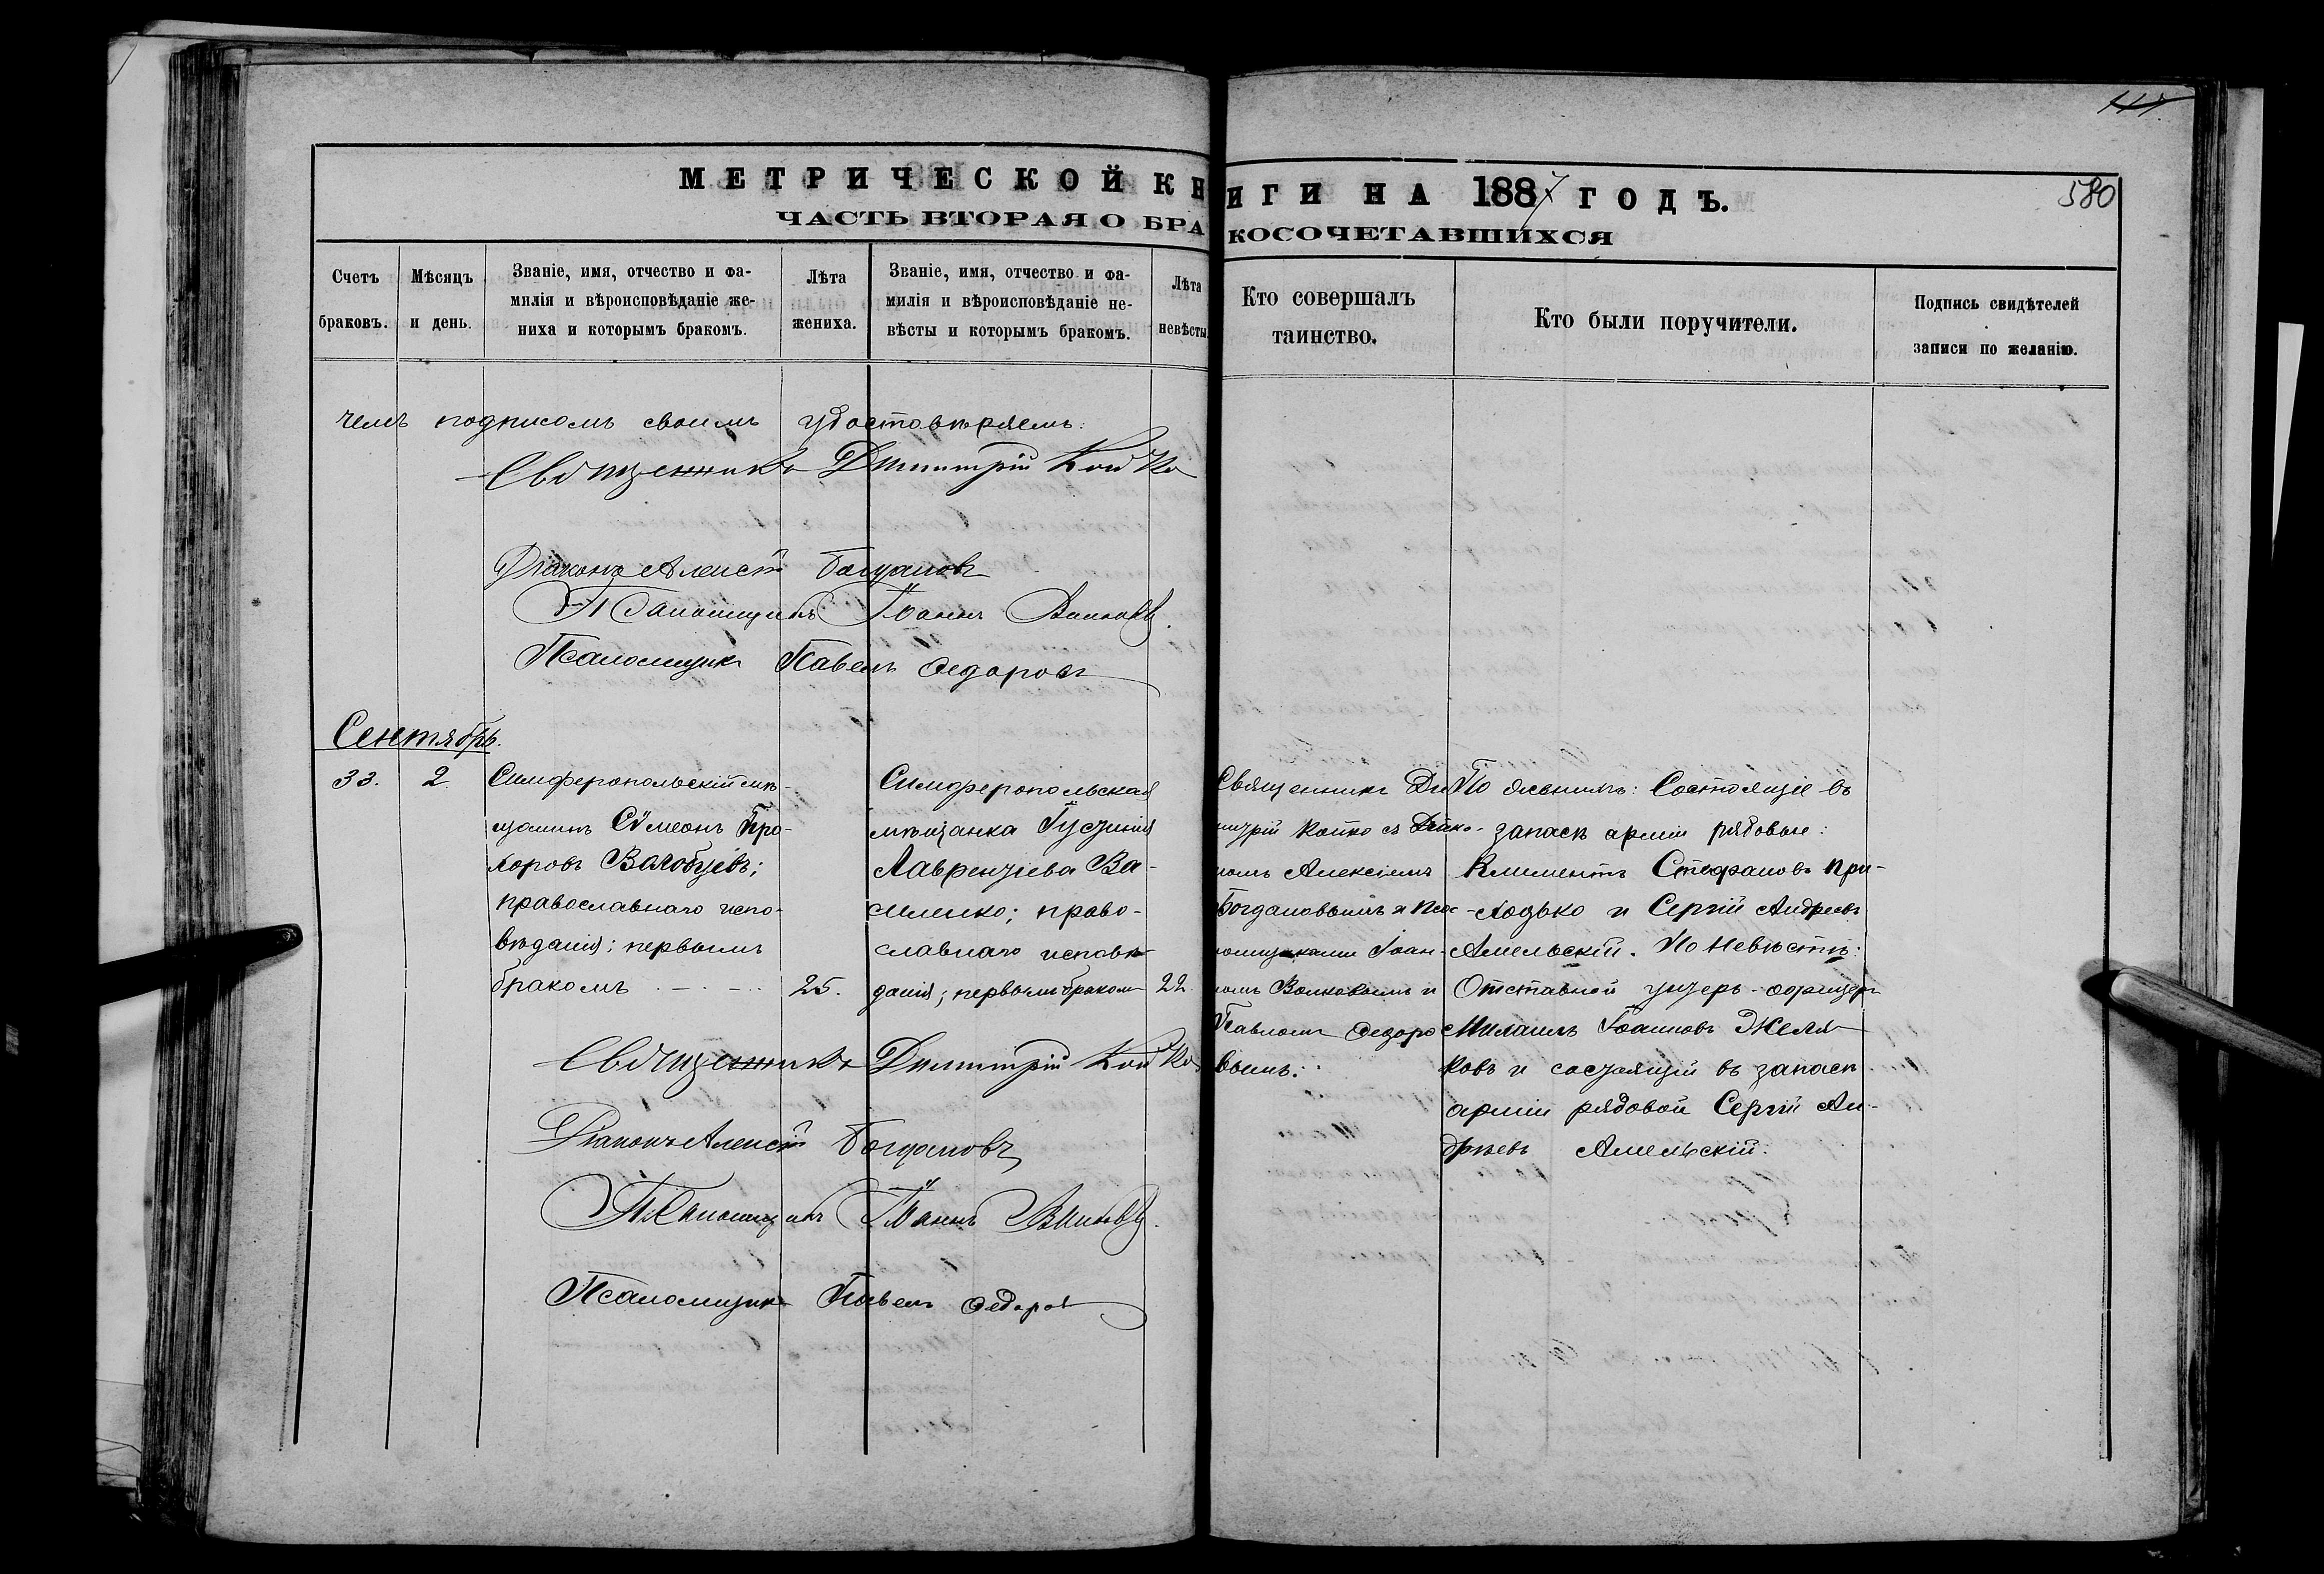 580
МЕТРИЧЕСКОЙ КНИГИ НА 1887 ГОДЪ.
ЧАСТЬ ВТОРАЯ О БРАКОСОЧЕТАВШИХСЯ
Счетъ
браковъ.
Мѣсяцъ
и день.
Званіе, имя, отчество и фа-
милія и вѣроисповѣданіе же-
ниха и которымъ бракомъ.
Лѣта
жениха.
Званіе, имя, отчество и фа-
милія и вѣроисповѣданіе не-
вѣсты и которымъ бракомъ.
Лѣта
невѣсты.
Кто совершалъ
таинство.
Кто были поручители.
Подпись свидѣтелей
записи по желанію.
чемъ подписомъ своимъ удостовѣряемъ:
Священникъ Димитрій Койко
Діаконъ Алексѣй Богдановъ
Псаломщикъ Іоаннъ Волковъ
Псаломщикъ Павелъ Федоровъ
Сентябрь.
33.
2
Симферопольскій мѣ-
щанинъ Сѵмеонъ Про-
хоровъ
православнаго испо-
вѣданія; первымъ
бракомъ
25.
Симферопольская
мѣщанка Іустинія
Лаврентіева Ва-
силенко; право-
славнаго исповѣ-
данія; первымъ бракомъ
22.
Священникъ Ди-
митрій Койко съ Діако-
номъ Алексіемъ
Богдановымъ и Пса-
ломщиками Іоан-
номъ Волковымъ и
Павломъ Федоро
вымъ.
По женихѣ: Состоящіе въ
запасѣ арміи рядовые:
Климентъ Стефановъ При-
ходько и Сергій Андреевъ
Амельскій. По невѣстѣ:
Отставной унтеръ-офицеръ
Михаилъ Іоанновъ Желя
ковъ и состоящій въ запасѣ
арміи рядовой Сергій Ан-
дреевъ Амельскій.
Священникъ Димитрій Койко
Діаконъ Алексѣй Богдановъ
Псаломщикъ Іоаннъ Волковъ
Псаломщикъ Павелъ Федоровъ